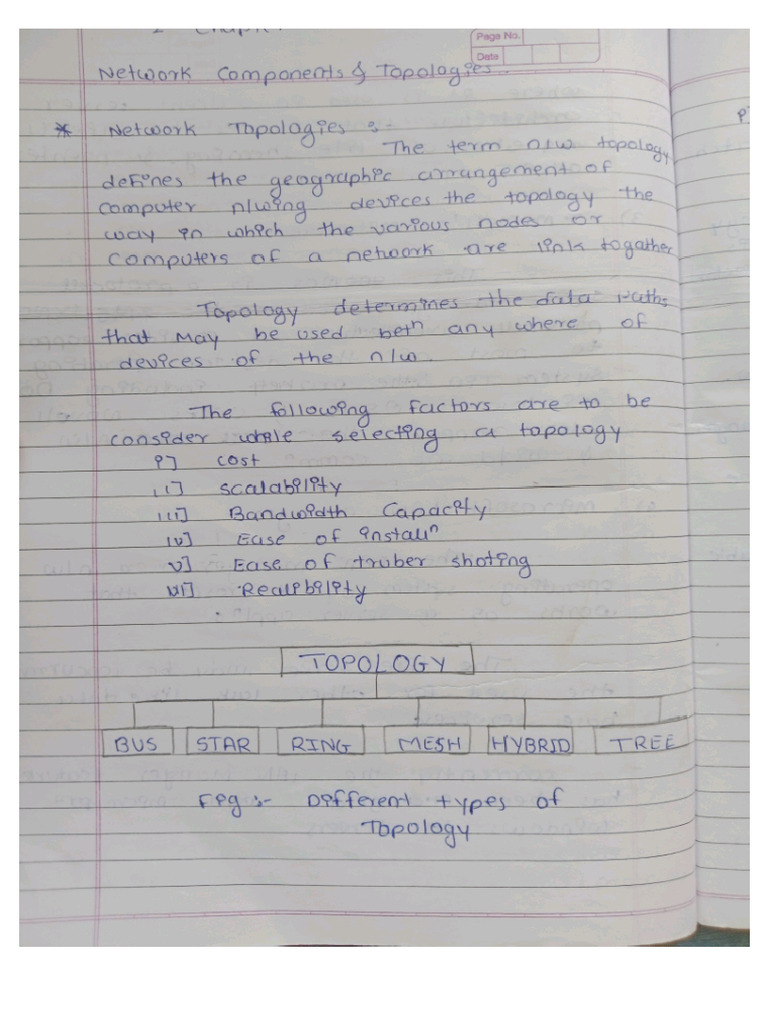 Page No.
Date
Network Components & Topologies.
* Network Topologies :-
The term n/w topology
defines the geographic arrangement of
computer n/wing devices the topology the
way in which the various nodes or
computers of a network are link togather
Topology determines the data paths
that may be used betn any where of
devices of the n/w.
The following factors are to be
consider while selecting a topology
i] cost
ii] scalability
iii] Bandwidth Capacity
iv] Ease of installn
v] Ease of truber shoting
vi] Realibility
TOPOLOGY
BUS STAR RING MESH HYBRID TREE
Fig :- Different types of
Topology